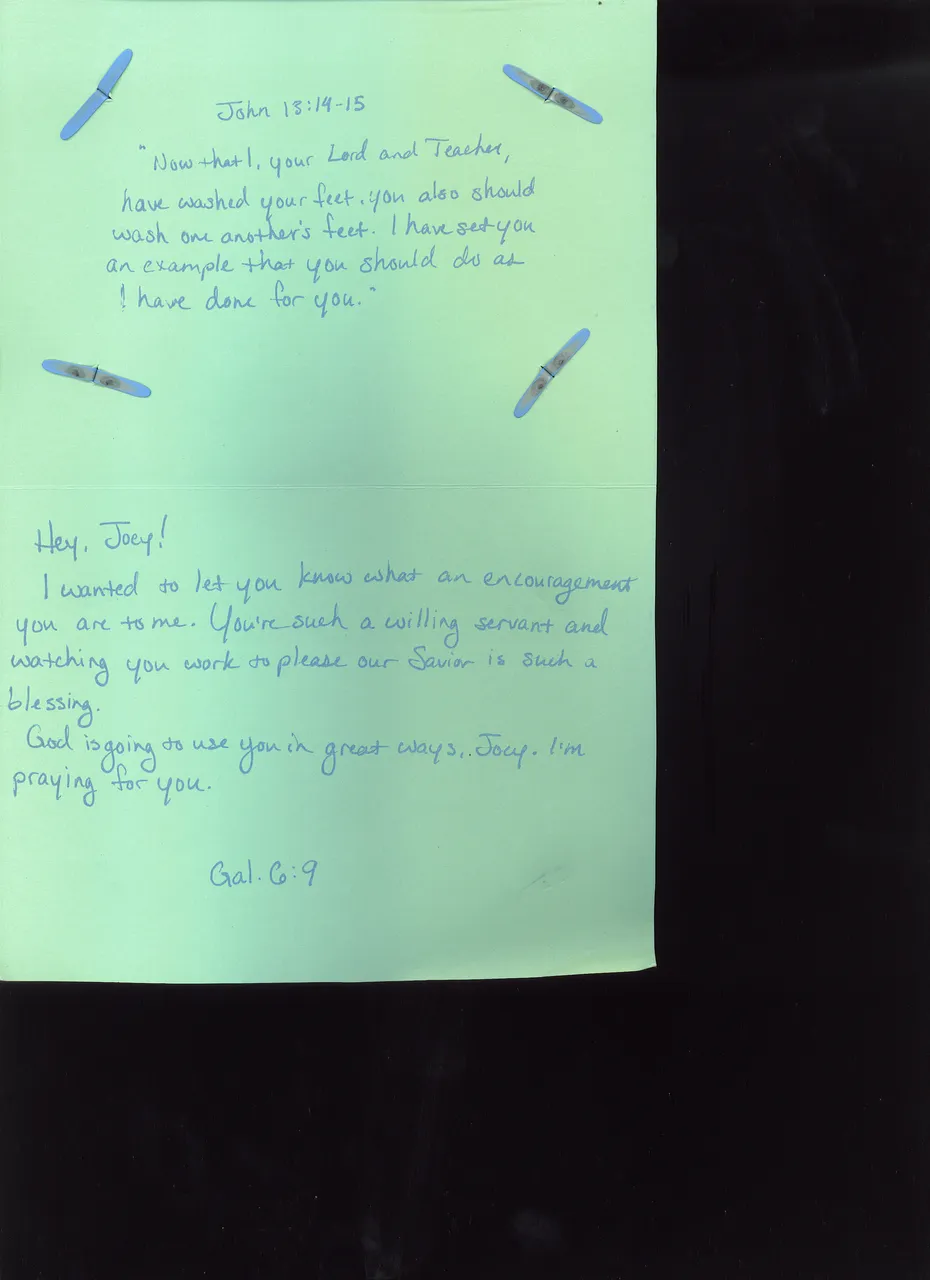 John 13:14-15
"Now that I, your Lord and Teacher,
have washed your feet, you also should
wash one another's feet. I have set you
an example that you should do as
I have done for you."
Hey, Joey!
I wanted to let you know what an encouragement
you are to me. You're such a willing servant and
watching you work to please our Savior is such a
blessing.
God is going to use you in great ways, Joey. I'm
praying for you.
Gal. 6:9